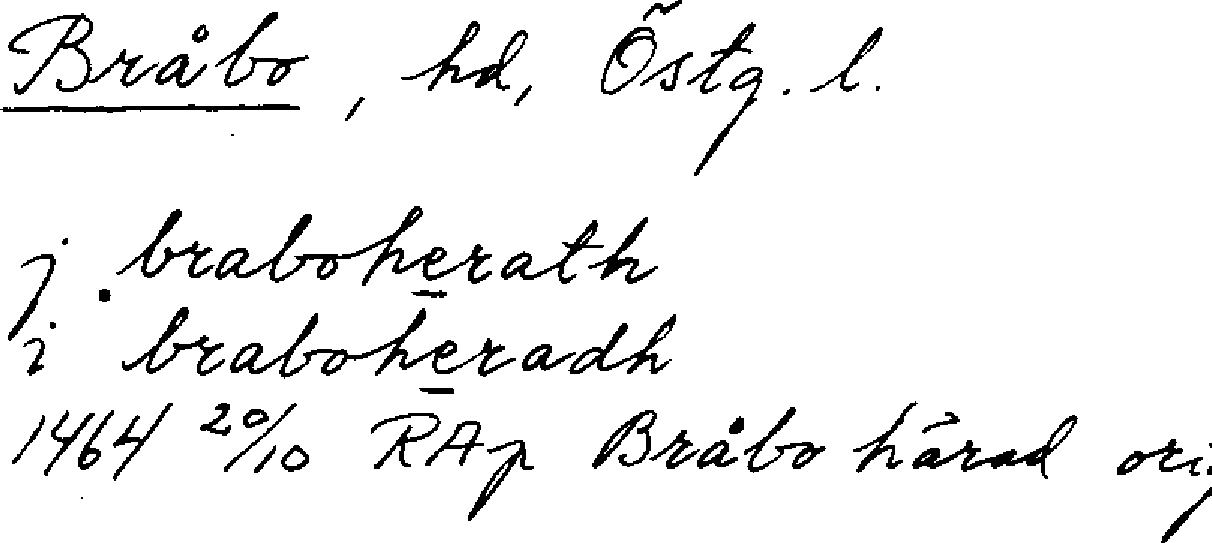 Bråbo, hd, Östg. l.
j braboherath
i braboheradh
1464 20/10 RAp Bråbo härad orig